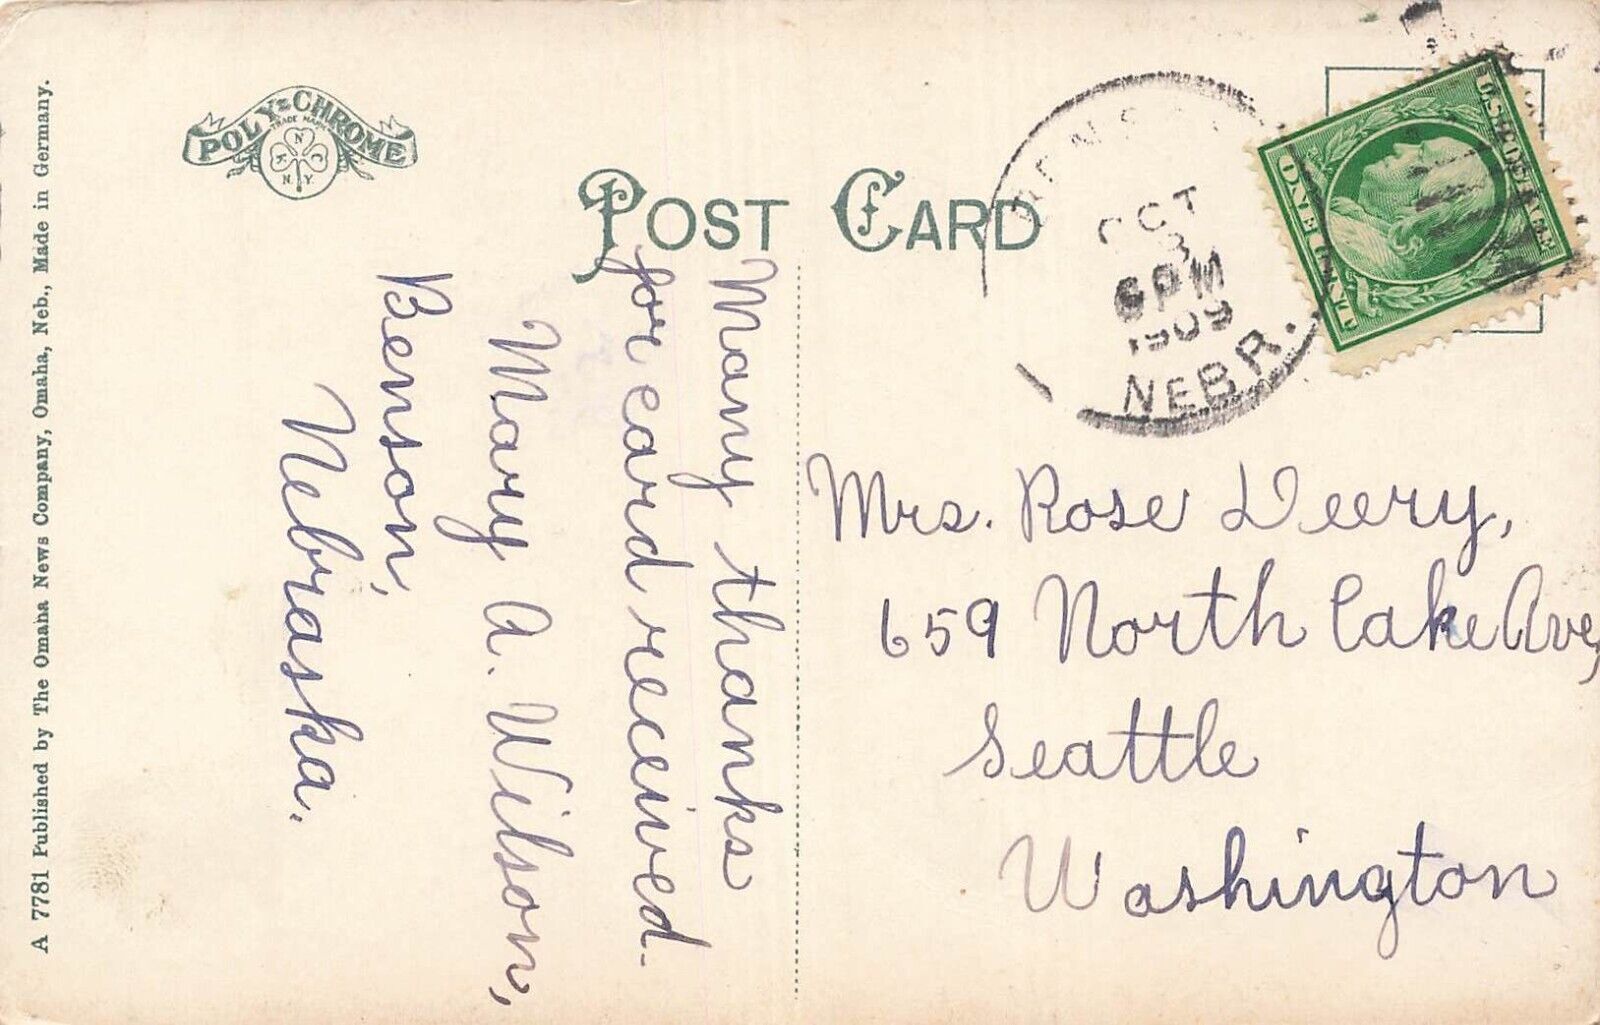 A 7781 Published by The Omaha News Company, Omaha, Neb., Made in Germany.
POLY-CHROME
TRADE MARK
N
K C
N.Y.
POST CARD
Many thanks
for card received.
Mary A. Wilson,
Benson,
Nebraska.
BENSON
OCT
3
6 PM
1909
NEBR.
U.S. POSTAGE
ONE CENT
Mrs. Rose Deery,
659 North Lake Ave,
Seattle
Washington